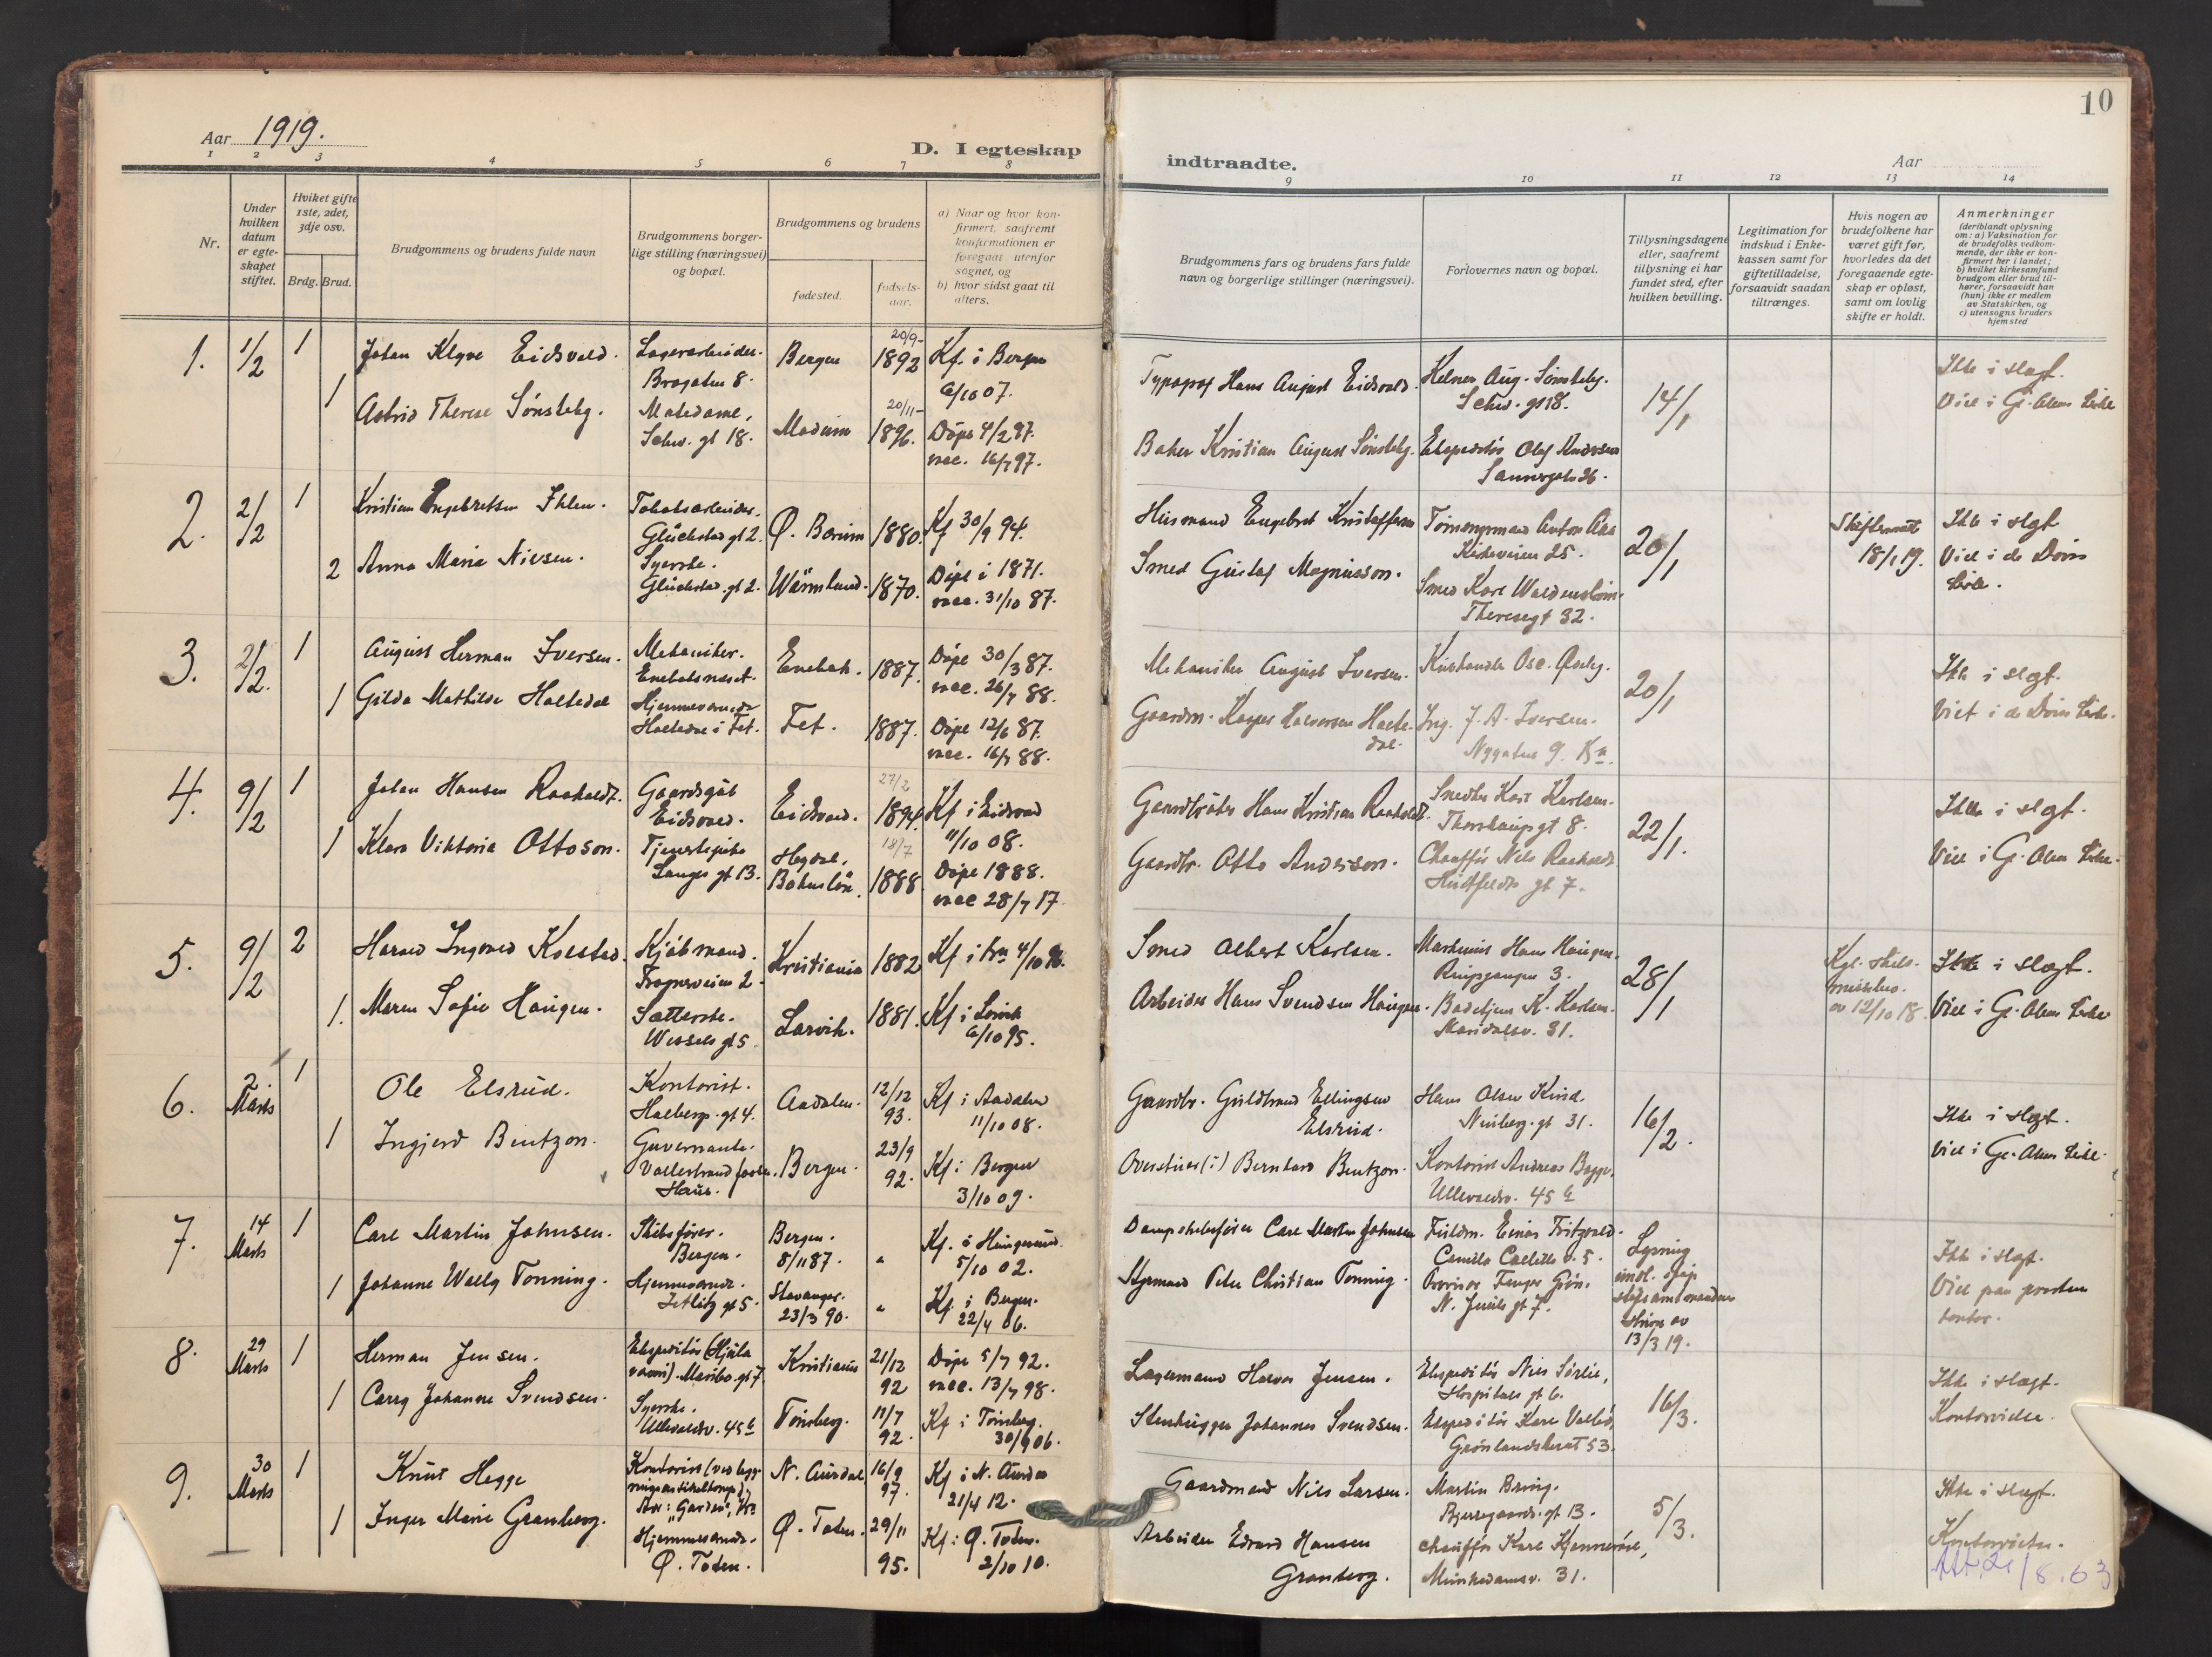 10
Aar 1919.
D. I egteskap
indtraadte.
Aar
1 2 3 4 5 6 7 8
9 10 11 12 13 14
Nr.
Under hvilken datum er egteskapet stiftet.
Hviket gifte 1ste, 2det, 3dje osv.
Brdg. Brud.
Brudgommens og brudens fulde navn
Brudgommens borgerlige stilling (næringsvei) og bopæl.
Brudgommens og brudens
fødested.
fødselsaar.
a) Naar og hvor konfirmert, saafremt konfirmationen er foregaat utenfor sognet, og
b) hvor sidst gaat til alters.
Brudgommens fars og brudens fars fulde navn og borgerlige stillinger (næringsvei).
Forlovernes navn og bopæl.
Tillysningsdagene eller, saafremt tillysning ei har fundet sted, efter hvilken bevilling.
Legitimation for indskud i Enkekassen samt for giftetilladelse, forsaavidt saadan tiltrænges.
Hvis nogen av brudefolkene har været gift før, hvorledes da det foregaaende egteskap er opløst, samt om lovlig skifte er holdt.
Anmerkninger (deriblandt oplysning om: a) Vaksination for de brudefolks vedkommende, der ikke er konfirmert her i landet; b) hvilket kirkesamfund brudgom eller brud tilhører, forsaavidt han (hun) ikke er medlem av Statskirken, og c) utensogns bruders hjemsted
1. 1/2 1 Johan Klyve Eidsvold. Lagerarbeider. Bergen 20/9- 1892 Kf. i Bergen
6/10 07.
1 Astrid Therese Sønsteby. Schw. gt 18. Modum 20/11- 1896. Døpt 4/2 97.
vac. 16/7 97.
Typograf Hans August Eidsvold. Aug. Sønsteby.
Schw. gt 18. 14/1
Baker Kristian August Sønsteby. Ekspeditør Olaf Andersen
Sannergata 26.
Ikke i slegt.
Viet i Gl. Akers kirke
2. 2/2 1 Kristian Engebretsen Ihlen. Tobaksarbeider.
Glückstad gt 2. Ø. Bærum 1880. Kf 30/9 94.
2 Anna Maria Nilsen. Syerske.
Glückstad. gt 2. Wärmland. 1870. Døpt i 1871.
vac. 31/10 87.
Husmand Engebret Kristoffersen Anton
Kirkeveien 25. 20/1
Smed Gustaf Magnusson. Smed Karl
Theresegt 32.
Skifteattest
18/1 19.
Ikke i slegt
Viet i
kirke.
3. 2/2. 1 August Herman Iversen. Mekaniker.
Enebakneset. Enebak. 1887. Døpt 30/3 87.
vac. 26/7 88.
1 Gilda Mathilde Holtedal Hjemmeværende
Holtedal i Fet. Fet. 1887. Døpt 12/6 87.
vac. 16/7 88.
Mekaniker August Iversen. 20/1
Gaardm. Kasper Halvorsen Holtedal. Ing. J. A. Iversen.
Nygaten 9. Kra.
Ikke i slegt.
Viet i kirke.
4. 9/2 1 Johan Hansen Raaholdt. Gaardsgut
Eidsvold. Eidsvold. 27/2 1894. Kf i Eidsvold
11/10 08.
1 Klara Viktoria Ottoson. Tjenestepike
Langes gt 13. Bohuslän. 18/7 1888 Døpt 1888.
vac 28/7 17
Gaardbruker Hans Kristian Raaholdt. Karl Karlsen.
gt 8. 22/1.
Gaardbr. Otto Andersson. Chauffør Nils Raaholdt
Huitfeldts gt 7.
Ikke i slegt.
Viet i Gl. Akers kirke.
5. 9/2 2 Harald Ingvald Kolstad. Kjøbmand.
Frognerveien 2. Kristiania 1882 Kf i Kra 4/10 96.
1. Maren Sofie Haugen. Sætterske.
Wessels gt 5 Larvik. 1881. Kf i Larvik
6/10 95.
Smed Albert Karlsen. Hans Haugen.
Ringgangen 3. 28/1
Arbeider Hans Svendsen Haugen. K. Karlsen.
Mandalsv. 31.
Kgl. skilsmissebev.
av 12/10 18.
Ikke i slegt.
Viet i Gl. Akers kirke
6. 2. Marts 1 Ole Elsrud. Kontorist.
Holbergs. gt 4. Aadalen. 12/12 93. Kf i Aadalen
11/10 08.
1 Ingjerd Bentzon. Guvernante.
Haus. Bergen. 23/9 92. Kf i Bergen
3/10 09.
Gaardbr. Guldbrand Ellingsen Hans Olsen
Elsrud. gt 31. 16/2.
Bernhard Bentzon. Kontorist Andreas
Ullevaalsv. 45 b
Ikke i slegt.
Viet i Gl. Akers kirke.
7. 14 Marts 1 Carl Martin Johnsen. Skibsfører.
Bergen. Bergen. 8/11 87. " Kf. i Haugesund.
5/10 02.
1 Johanne Wally Tonning. Hjemmeværende.
Jetlitz gt 5. Stavanger. 23/3 90. " Kf. i Bergen.
22/4 06.
Dampskibsfører Carl Martin Johnsen Fuldm. Einar
Camilla Colletts v. 5. Lysning
Styrmand Peter Christian Tonning.
N. Juels gt 7.
13/3 19.
Ikke i slegt.
Viet paa prestens
kontor.
8. 29 Marts 1 Herman Jensen. Ekspeditør
Maribo. gt 7. Kristiania 21/12 92 Døpt 5/7 92.
vac. 13/7 98.
1 Carry Johanne Svendsen. Syerske.
Ullevaalsv. 45 b Tønsberg. 11/7 92. Kf i Tønsberg.
30/9 06.
Lagermand Halvor Jensen. Ekspeditør Nils Sørlie,
Hospitals gt 6. 16/3.
Stenhugger Johannes Svendsen. Ekspeditør Karl
Grønlandsleret 53.
Ikke i slegt.
Kontorvielse.
9. 30 Marts 1 Knut Hegge Kontorist
N. Aurdal 16/9 97. Kf i N. Aurdal
21/4 12.
1 Inger Marie Granberg. Hjemmeværende.
Ø. Toten. Ø. Toten. 29/11 95. Kf i Ø. Toten.
2/10 10.
Gaardmand Nils Larsen. Martin Bring.
Bjerregaards. gt 13. 5/3.
Arbeider Edvard Hansen Chauffør Karl
Granberg. Munkedamsv. 31.
Ikke i slegt.
Kontorvielse.
Att. 21/8.63